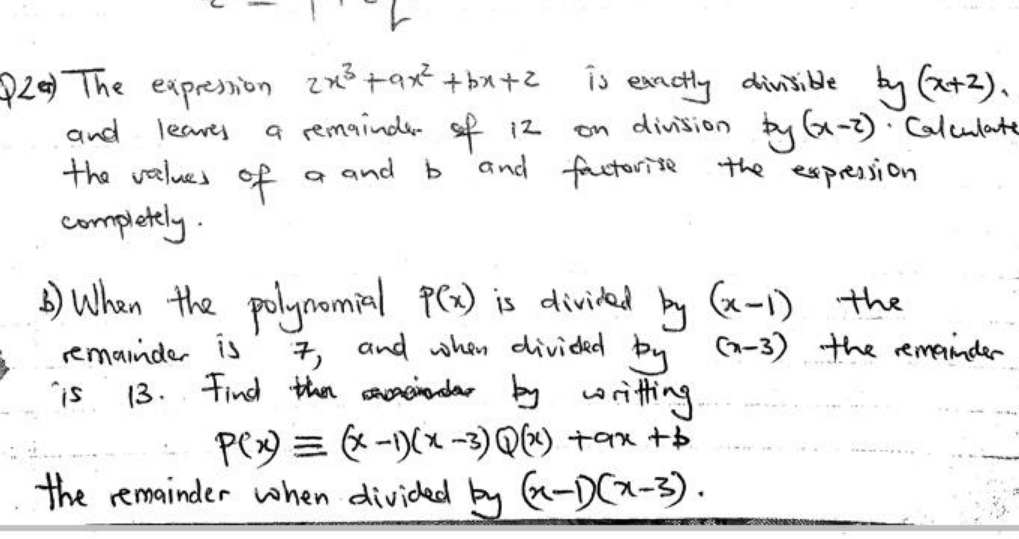 Q2a) The expression 2x³ + ax² + bx + 2 is exactly divisible by (x+2),
and leaves a remainder of 12 on division by (x-2). Calculate
the values of a and b and factorise the expression
completely.
b) When the polynomial P(x) is divided by (x-1) the
remainder is 7, and when divided by (x-3) the remainder
is 13. Find by writting
P(x) ≡ (x-1)(x-3)Q(x) + ax + b
the remainder when divided by (x-1)(x-3).